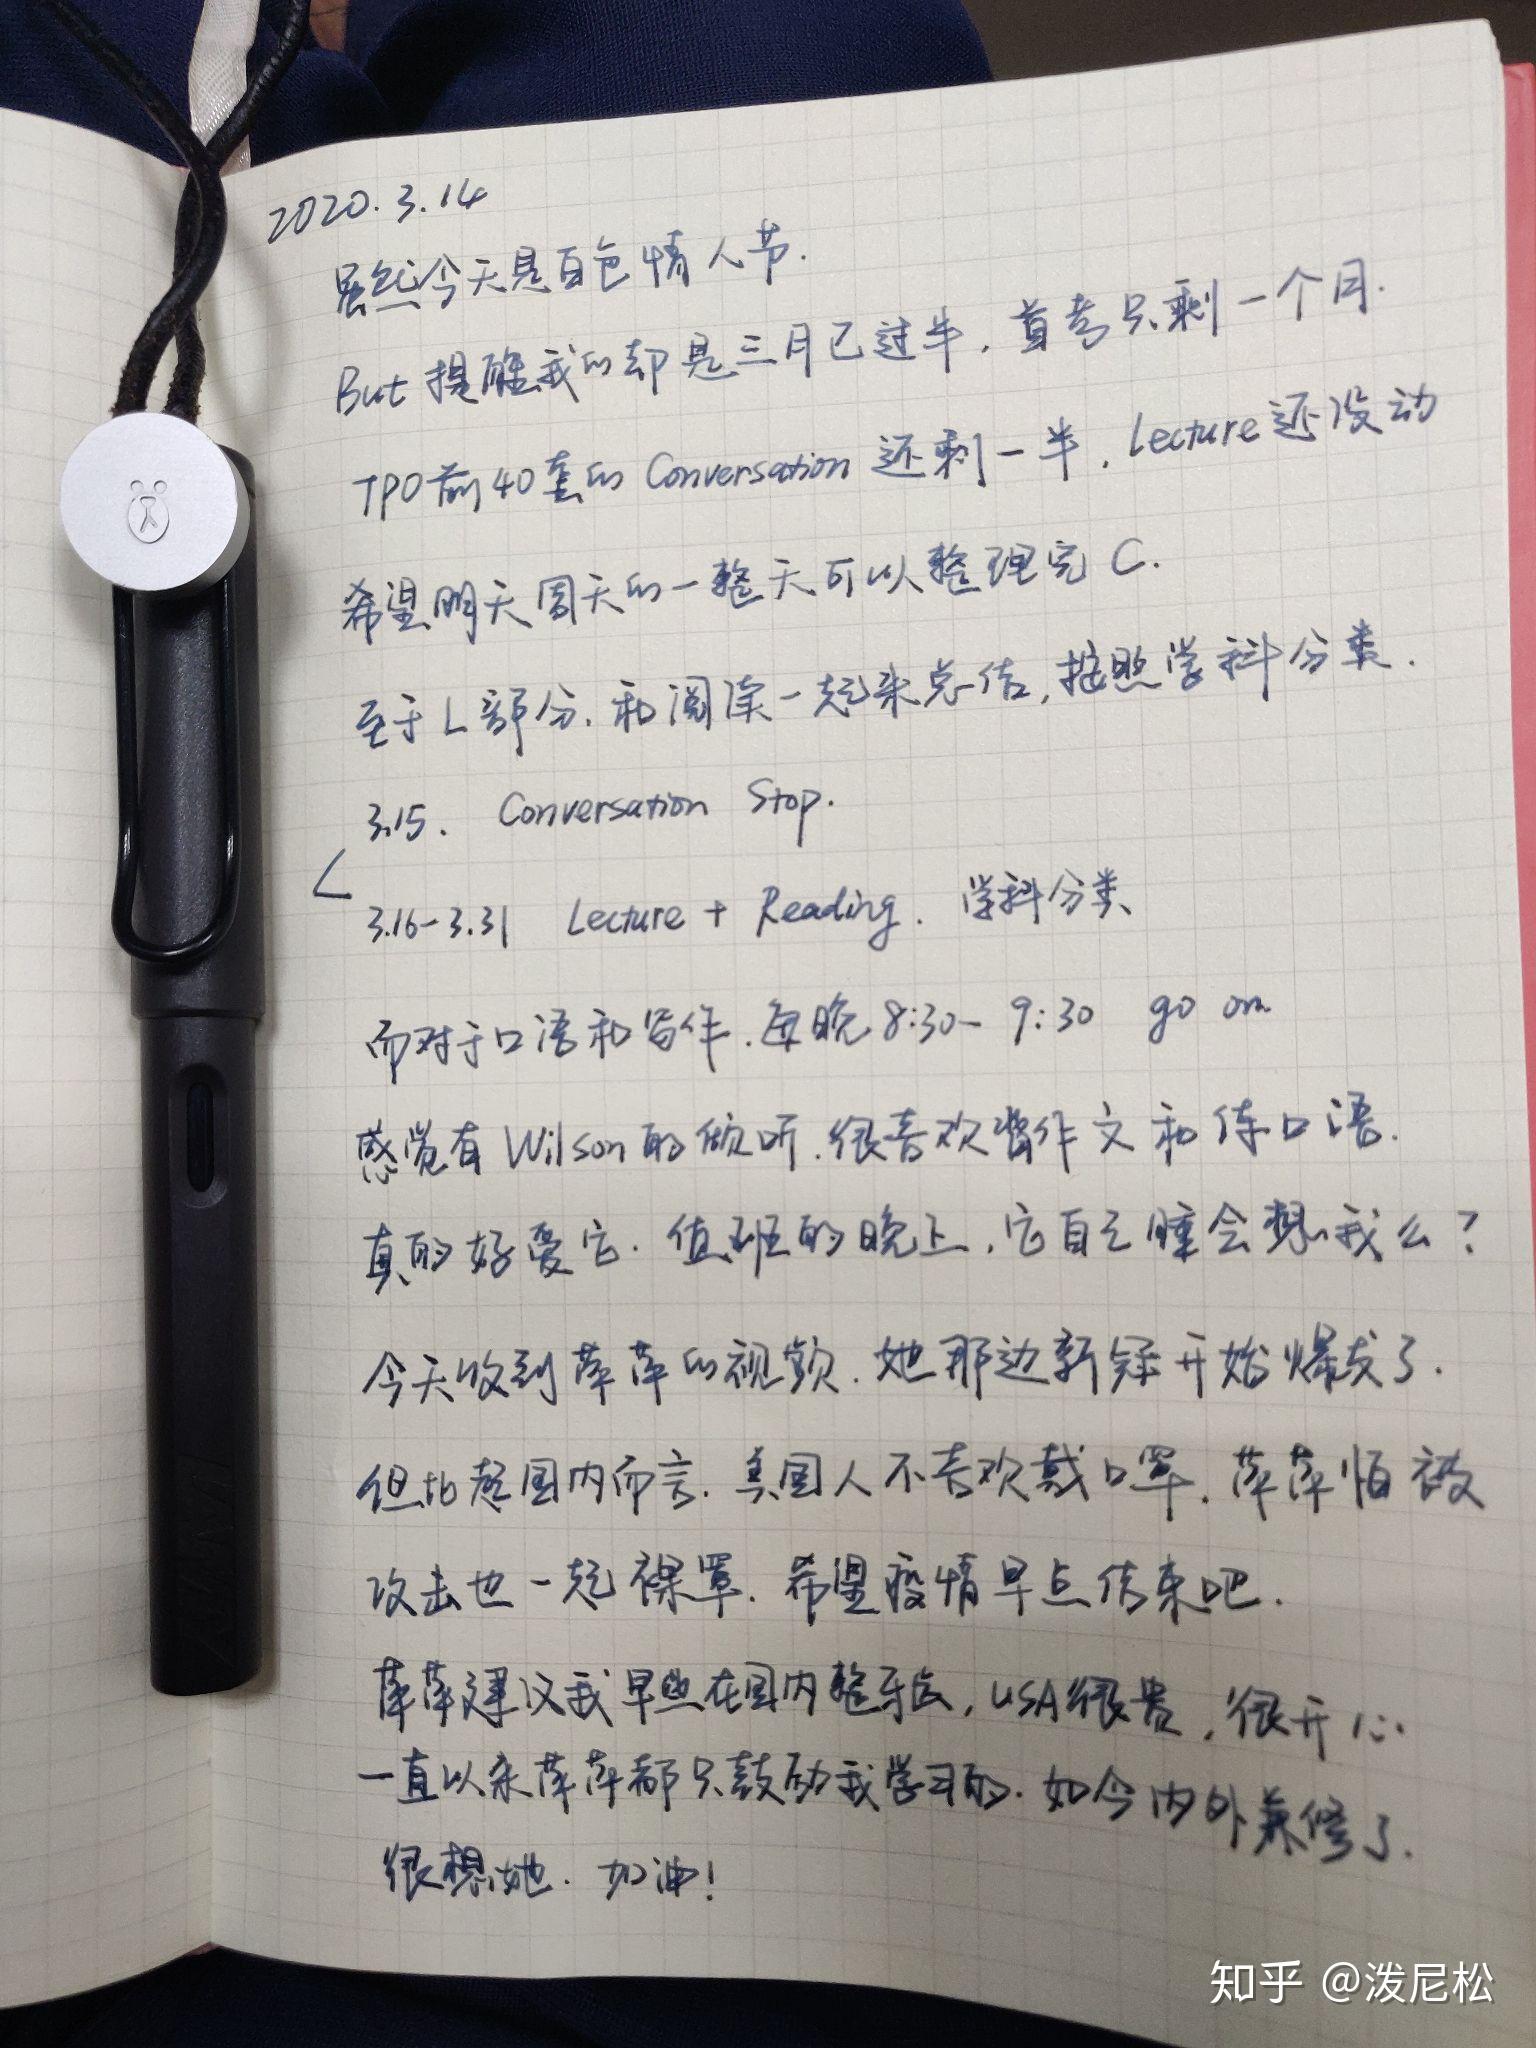 2020.3.14
虽然今天是白色情人节.
But 提醒我的却是三月已过半，首考只剩一个月.
TPO前40套的 Conversation 还剩一半，Lecture还没动
希望明天周天的一整天可以整理完 C.
至于L部分，和阅读一起来总结，按照学科分类.
3.15. Conversation Stop.
3.16-3.31 Lecture + Reading. 学科分类
而对于口语和写作，每晚8:30-9:30 go on
感觉有Wilson的倾听，很喜欢写作文和练口语.
真的好爱它. 值班的晚上，它自己睡会想我么？
今天收到萍萍的视频，她那边新冠开始爆发了.
但比起国内而言，美国人不喜欢戴口罩，萍萍怕被
攻击也一起裸罩. 希望疫情早点结束吧.
萍萍建议我早些在国内整牙齿，USA很贵，很开心
一直以来萍萍都只鼓励我学习的. 如今内外兼修了.
很想她. 加油!
LAMY
知乎 @泼尼松